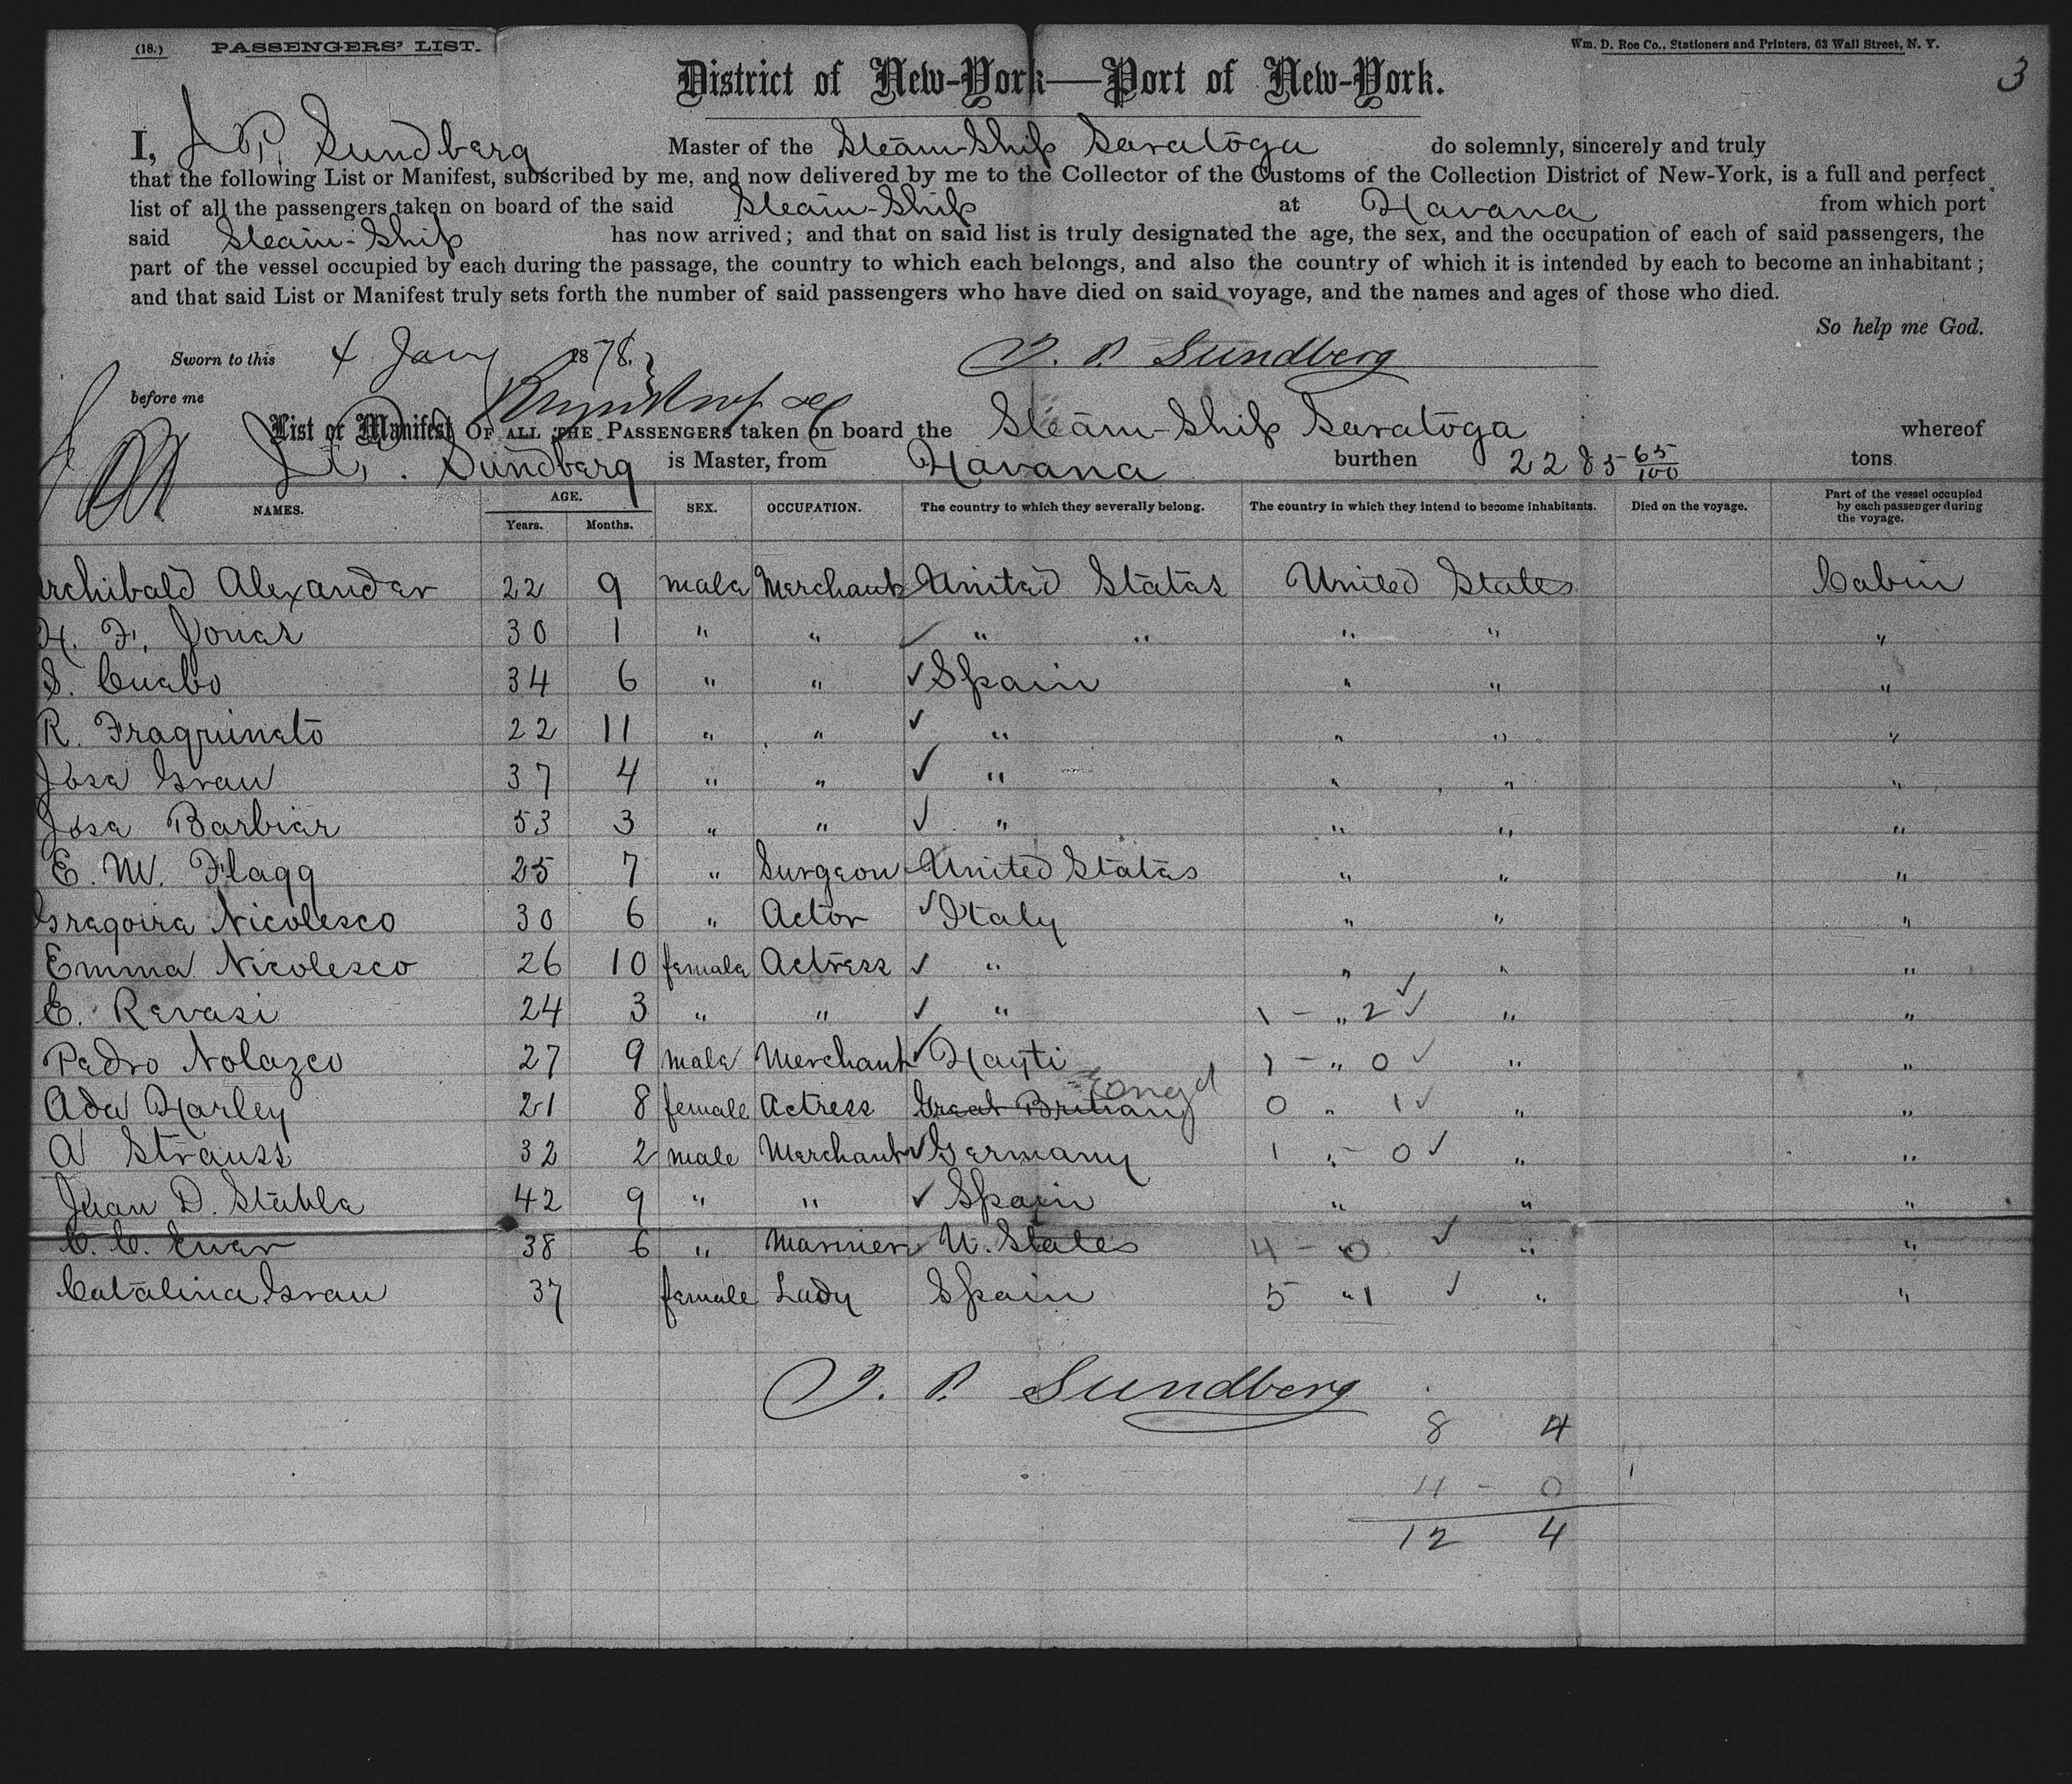 (18.) PASSENGERS' LIST. Wm. D. Roe Co., Stationers and Printers, 63 Wall Street, N. Y.
3
District of New-York—Port of New-York.
I, J. P. Sundberg Master of the Steam-Ship Saratoga do solemnly, sincerely and truly
that the following List or Manifest, subscribed by me, and now delivered by me to the Collector of the Customs of the Collection District of New-York, is a full and perfect
list of all the passengers taken on board of the said Steam-Ship at Havana from which port
said Steam-Ship has now arrived; and that on said list is truly designated the age, the sex, and the occupation of each of said passengers, the
part of the vessel occupied by each during the passage, the country to which each belongs, and also the country of which it is intended by each to become an inhabitant;
and that said List or Manifest truly sets forth the number of said passengers who have died on said voyage, and the names and ages of those who died.
So help me God.
Sworn to this 4 Jany 1878. J. P. Sundberg
before me
List or Manifest OF ALL THE PASSENGERS taken on board the Steam-Ship Saratoga whereof
J. P. Sundberg is Master, from Havana burthen 2285 65/100 tons
NAMES. AGE. Years. Months. SEX. OCCUPATION. The country to which they severally belong. The country in which they intend to become inhabitants. Died on the voyage. Part of the vessel occupied by each passenger during the voyage.
Archibald Alexander 22 9 male Merchant United States United States Cabin
H. F. Jones 30 1 " " ✓ " " " " "
S. Cuebo 34 6 " " ✓ Spain " " "
R. Fraquineto 22 11 " " ✓ " " " "
Jose Grau 37 4 " " ✓ " " " "
Jose Barbier 53 3 " " ✓ " " " "
E. W. Flagg 25 7 " Surgeon United States " " "
Gregoire Nicolesco 30 6 " Actor ✓ Italy " " "
Emma Nicolesco 26 10 female Actress ✓ " " " "
E. Revasi 24 3 " " ✓ " 1 - " 2 ✓ " "
Pedro Nolazco 27 9 male Merchant ✓ Hayti 1 - " 0 ✓ " "
Ada Harley 21 8 female Actress Great Britian Engd 0 " 1 ✓ " "
A Strauss 32 2 male Merchant ✓ Germany 1 " - 0 ✓ " "
Juan D. Stable 42 9 " " ✓ Spain " " "
C. C. Ever 38 6 " Mariner U. States 4 - " 0 ✓ " "
Catalina Grau 37 female Lady Spain 5 " 1 ✓ " "
J. P. Sundberg
8 4
4 - 0
12 4